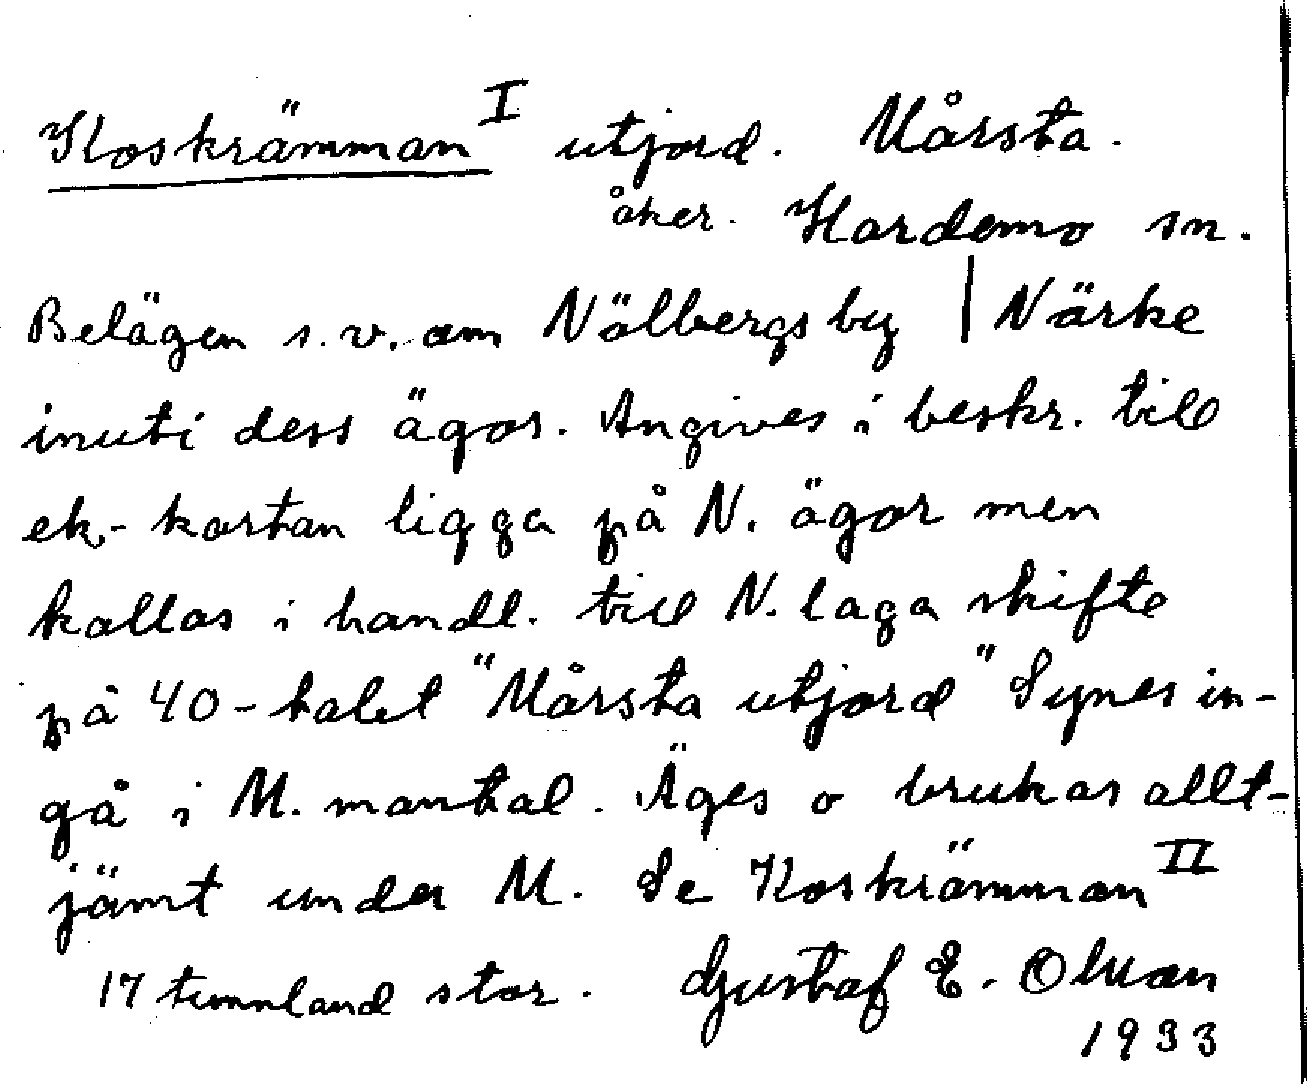 Koskrämman I utjord. Mårsta.
åker. Hardemo sn.
Belägen s.v. om Nälbergsby | Närke
inuti dess ägor. Angives i beskr. till
ek-kartan ligga på N. ägor men
kallas i handl. till N. laga skifte
på 40-talet "Mårsta utjord" Synes in-
gå i M. mantal. Äges o brukas allt-
jämt under M. Se Koskrämman II
17 tunnland stor. Gustaf E. Olsson
1933